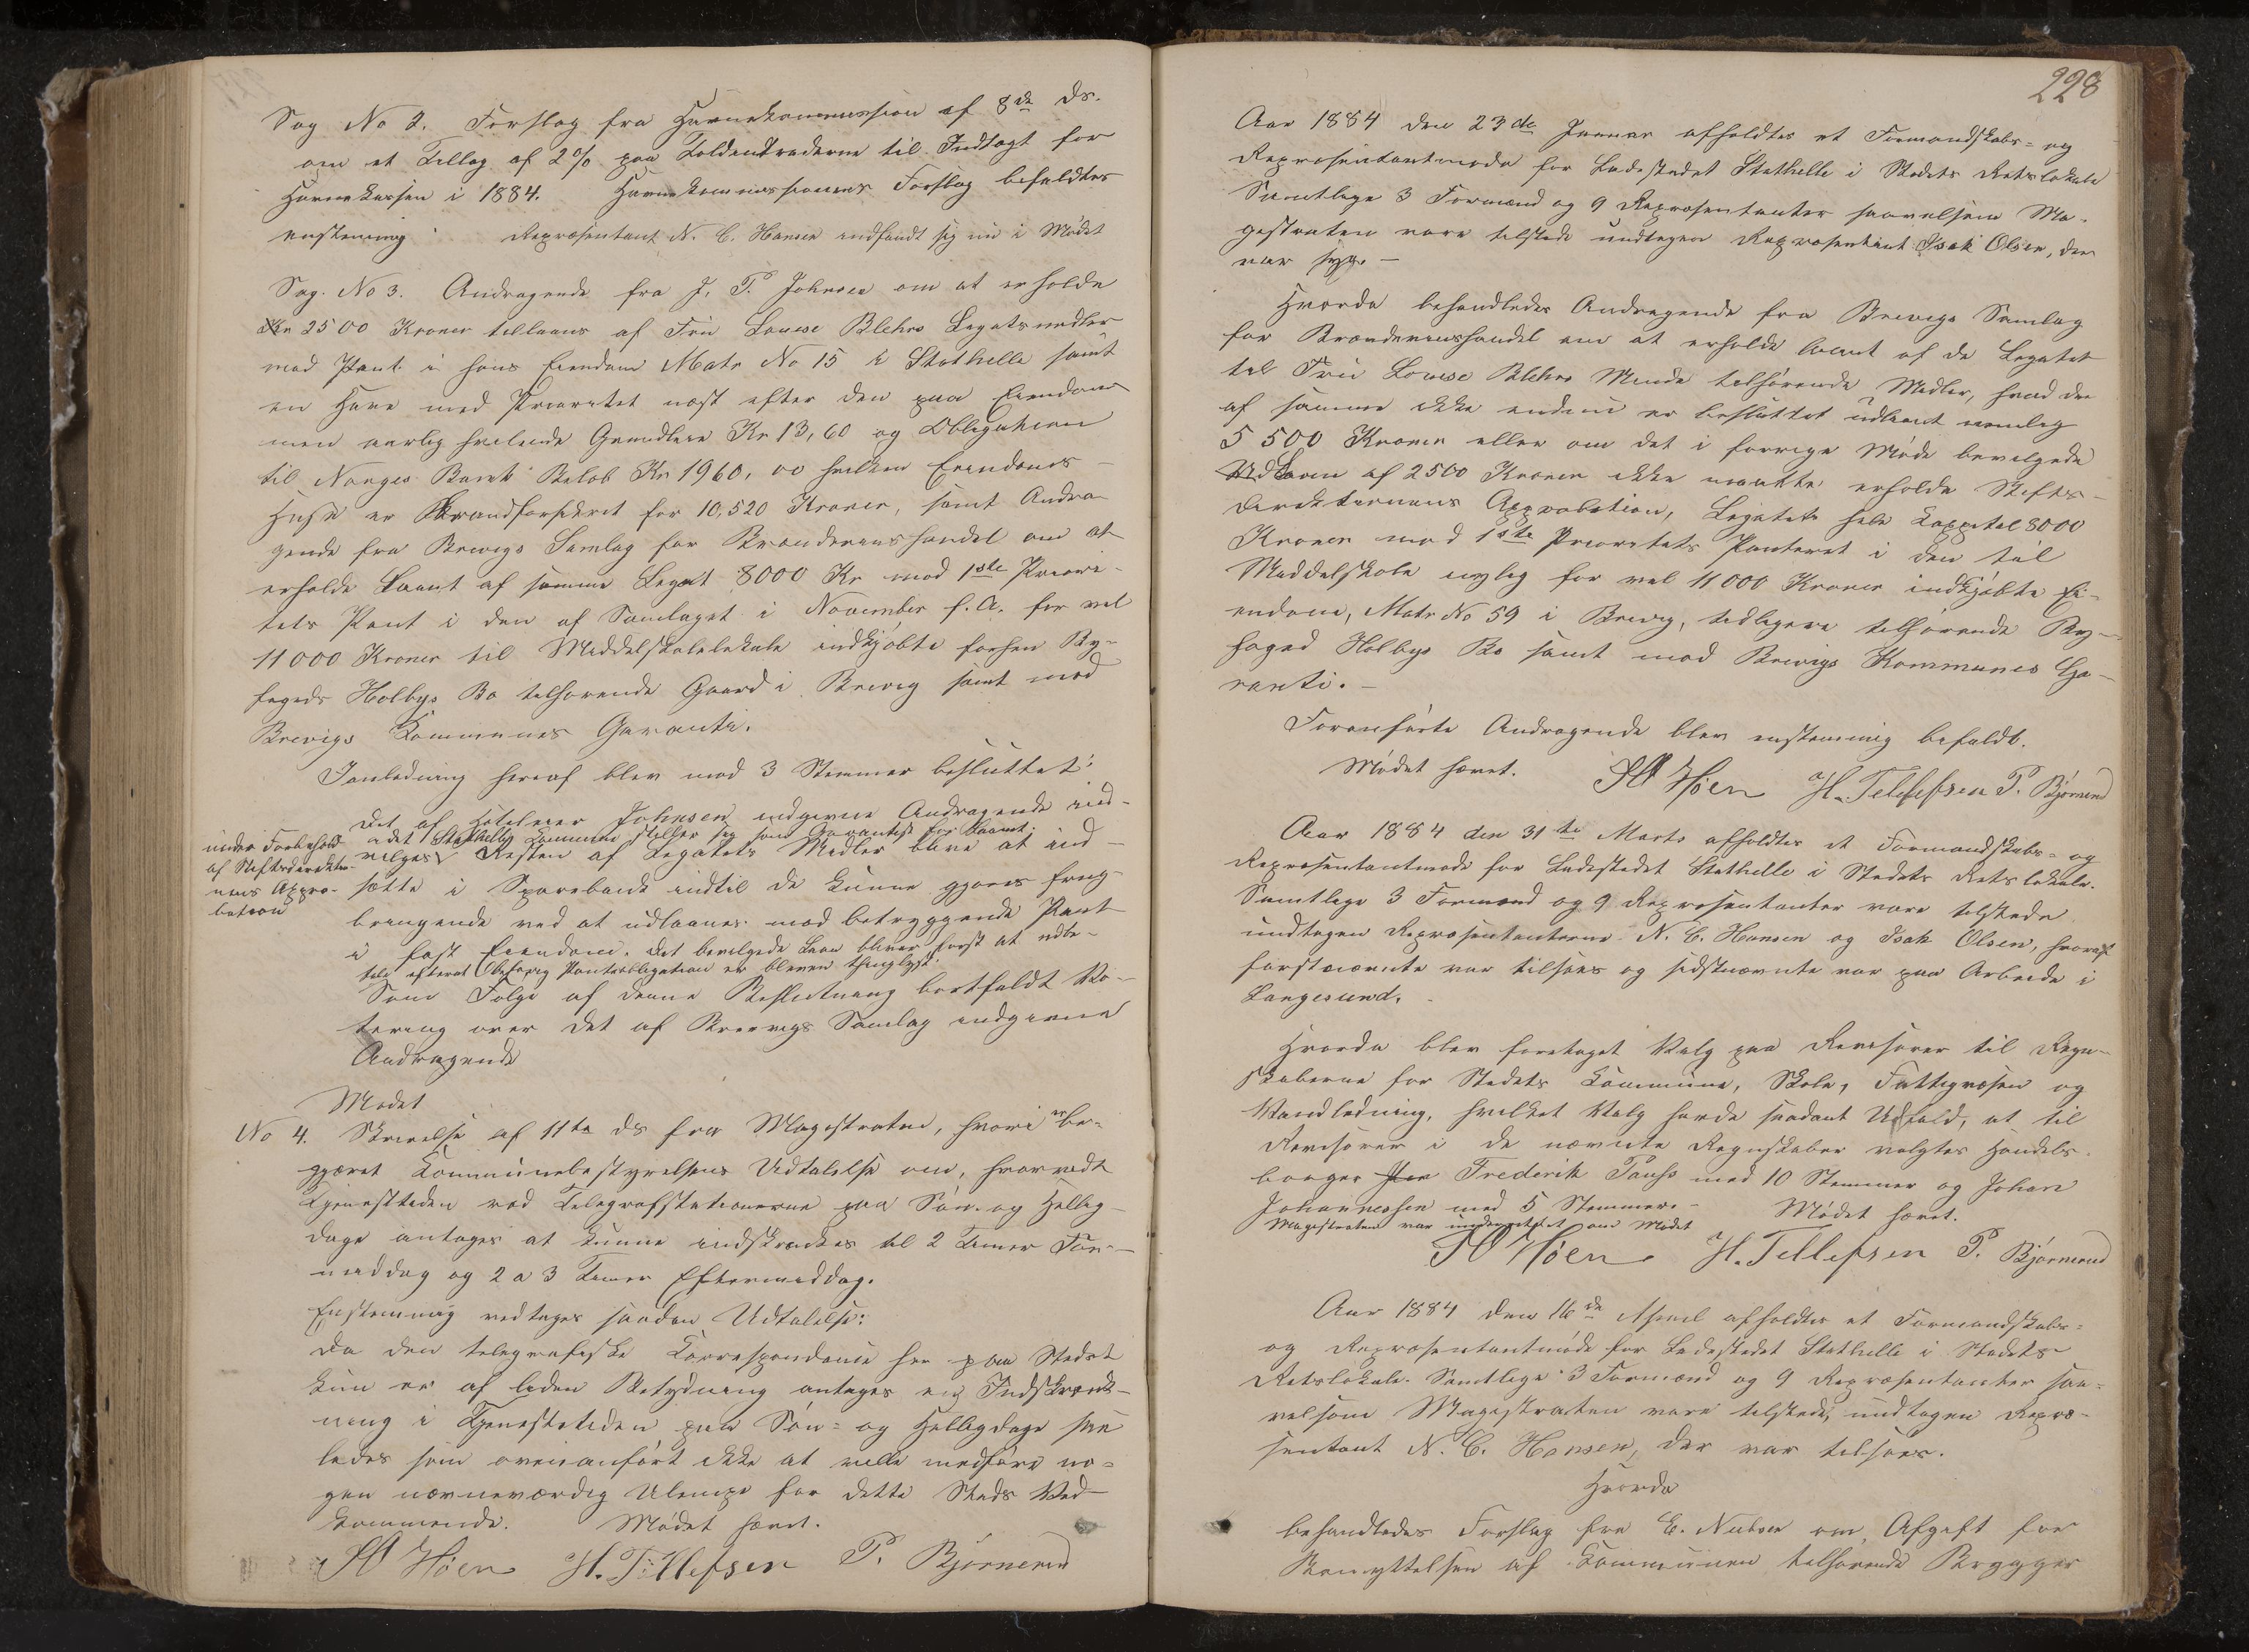 Sag No 2. Forslag fra Havnekommission af 8de ds.
om et Tillæg af 2 % paa Toldintraderne til Indtægt for
Havnekassen i 1884. Havnekommissionens Forslag bifaldtes
enstemmig. Repræsentant N. C. Hansen indfandt sig nu i Mødet
Sag. No 3. Andragende fra J. P. Johnsen om at erholde
Kr 2500 Kroner tillaans af Fru Louise Blehrs Legatsmidler
mod Pant i hans Eiendom Matr No 15 i Stathelle samt
en Have med Prioritet næst efter den paa Eiendom
men aarlig hvilende Grundleie Kr 13,60 og Obligation
til Norges Bank Beløb Kr 1960,00 hvilken Eiendoms
Huse er Brandforsikret for 10,520 Kroner, samt Andra-
gende fra Brevigs Samlag for Brændeviinshandel om at
erholde Laant af samme Legat 8000 Kr mod 1ste Priori-
tets Pant i den af Samlaget i November f. A. for vel
11000 Kroner til Middelskolelokale indkjøbte forhen By-
fogeds Holbys Bo tilhørende Gaard i Brevig samt mod
Brevigs Kommunes Garanti.
I Anledning heraf blev med 3 Stemmer besluttet:
Det af Hoteleier Johnsen indgivne Andragende ind-
under Forbehold adet Stathelle Kommune stiller sig som Garantist for Laanet.
af Stiftsdirektio- vilges Resten af Legatets Midler blive at ind-
nens Appro- sætte i Sparebank indtil de kunne gjøres frug-
bation bringende ved at udlaanes mod betryggende Pant
i fast Eiendom. Det bevilgede Laan bliver først at udbe-
tale efterat behørig Pantobligation er bleven thinglyst.
Som Følge af denne Beslutning bortfaldt Vo-
tering over det af Brevigs Samlag indgivne
Andragende
Mødet
No 4. Skrivelse af 11te ds fra Magistraten, hvori er be-
gjæret Kommunebestyrelsens Udtalelse om, hvorvidt
Tjenestetiden ved Telegrafstationerne paa Søn- og Hellig-
dage antages at kunne indskrænkes til 2 Timer For-
middag og 2 a 3 Timer Eftermiddag.
Enstemmig vedtages saadan Udtalelse:
Da den telegrafiske Korrespondance her paa Stedet
kun er af liden Betydning antages en Indskrænk-
ning i Tjenestetiden paa Søn- og Helligdage saa
ledes som ovenanført ikke at ville medføre no-
gen nævneværdig Ulempe for dette Steds Ved-
kommende. Mødet hævet.
H Høen H. Tellefsen P. Bjørnerud
228
Aar 1884 den 23de Januar afholdtes et Formandskabs- og
Repræsentantmøde for Ladestedet Stathelle i Stedets Retslokale
Samtlige 3 Formænd og 9 Repræsentanter saavelsom Ma-
gistraten vare tilstede undtagen Repræsentant Isak Olsen, der
var syg. —
Hvorda behandledes Andragende fra Brevigs Samlag
for Brændeviinshandel om at erholde laant af de Legatet
til Fru Louise Blehrs Minde tilhørende Midler, hvad der
af samme ikke endnu er besluttet udlaant nemlig
5500 Kroner eller om det i forrige Møde bevilgede
Udlaan af 2500 Kroner ikke maatte erholde Stifts-
direktionens Approbation, Legatets hele Kapital 8000
Kroner mod 1ste Prioritets Panteret i den til
Middelskole nylig for vel 11000 Kroner indkjøbte Ei-
endom, Matr No 59 i Brevig, tidligere tilhørende By-
foged Holbys Bo samt mod Brevigs Kommunes Ga-
ranti. —
Foranførte Andragende blev enstemmig bifaldt.
Mødet hævet. H Høen H. Tellefsen P. Bjørnerud
Aar 1884 den 31te Marts afholdtes et Formandskabs- og
Repræsentantmøde for Ladestedet Stathelle i Stedets Retslokale.
Samtlige 3 Formænd og 9 Repræsentanter vare tilstede
undtagen Repræsentanterne N. C. Hansen og Isak Olsen, hvoraf
førstnævnte var tilsøes og sidstnævnte var paa Arbeide i
Langesund.
Hvorda blev foretaget Valg paa Revisorer til Regn-
skaberne for Stedets Kommune, Skole, Fattigvæsen og
Vandledning, hvilket Valg havde saadant Udfald, at til
Revisorer i de nævnte Regnskaber valgtes Handels-
borger Frederik Pauss med 10 Stemmer og Johan
Johannessen med 5 Stemmer. — Mødet hævet.
Magistraten var underrettet om Mødet
H Høen H. Tellefsen P. Bjørnerud
Aar 1884 den 16de April afholdtes et Formandskabs-
og Repræsentantmøde for Ladestedet Stathelle i Stedets
Retslokale. Samtlige 3 Formænd og 9 Repræsentanter saa-
velsom Magistraten vare tilstede, undtagen Repræ-
sentant N. C. Hansen, der var tilsøes.
Hvorda
behandledes Forslag fra E. Nielsen om Afgift for
Benyttelsen af Kommunen tilhørende Brygger